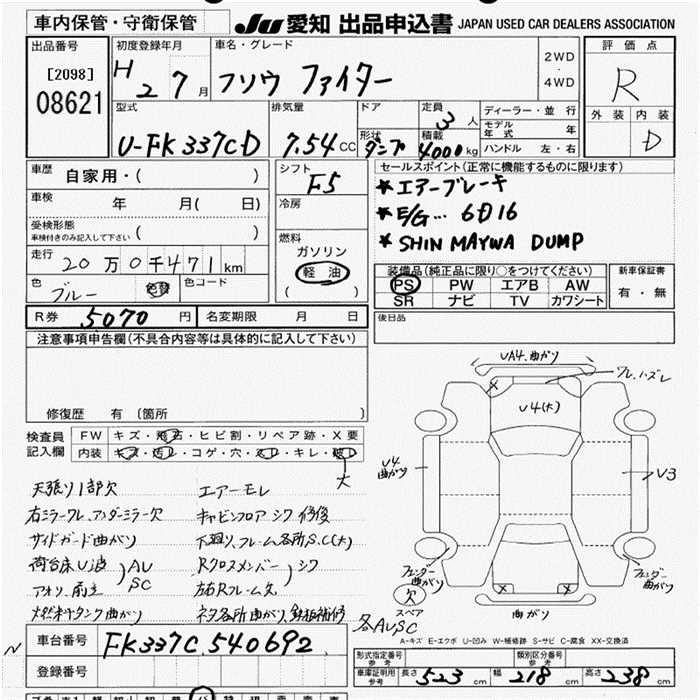 車内保管・守衛保管
JU 愛知 出品申込書 JAPAN USED CAR DEALERS ASSOCIATION
出品番号
[2098]
08621
初度登録年月
H 2 7 月
車名・グレード
フソウ ファイター
2WD
・
4WD
評価点
R
外装 内装
D
型式
U-FK337CD
排気量
7.54 CC
ドア
形状
ダンプ
定員
3 人
積載
4000 kg
ディーラー・並行
モデル年式 年
ハンドル 左・右
車歴 自家用・( )
車検 年 月( 日)
受検形態
車検付きのみ記入して下さい ( )
走行
20万0千471km
色
ブルー
色替
色コード
シフト
F5
冷房
燃料
ガソリン
軽油
( )
セールスポイント(正常に機能するものに限ります)
★エアーブレーキ
★E/G... 6D16
★SHIN MAYWA DUMP
装備品(純正品に限り○をつけてください)
PS PW エアB AW
SR ナビ TV カワシート
新車保証書
有・無
R券 5070 円
名変期限 月 日
後日品
注意事項申告欄(不具合内容等は具体的に記入して下さい)
修復歴 有 〔箇所 〕
検査員
記入欄
FW キズ・飛石・ヒビ割・リペア跡・X要
内装 キズ・汚レ・コゲ・穴・スレ・キレ・破レ
大
天張り1部欠
右ミラーワレ、アンダーミラー欠
サイドガード曲がり
荷台床U波
アオリ、前立
AU
SC
燃料キタンク曲がり
エアーモレ
キャビンフロア シワ 修後
下廻り、フレーム各所S.C(大)
Rクロスメンバー
左右Rフレーム先
シワ
ネタ各所曲がり、鉄板補修
各AUSC
UA4.曲がり
ワレ.ハズレ
U4(大)
U4
曲がり
V3
フェンダー
曲がり
フェンダー
曲がり
欠
スペア
曲がり
A-キズ E-エクボ U-凹み W-補修跡 S-サビ C-腐食 XX-交換済
N
車台番号 FK337C 540692
登録番号
形式指定番号
参考
類別区分番号
参考
車庫証明用
参考
長さ 523 cm 幅 218 cm 高さ 238 cm